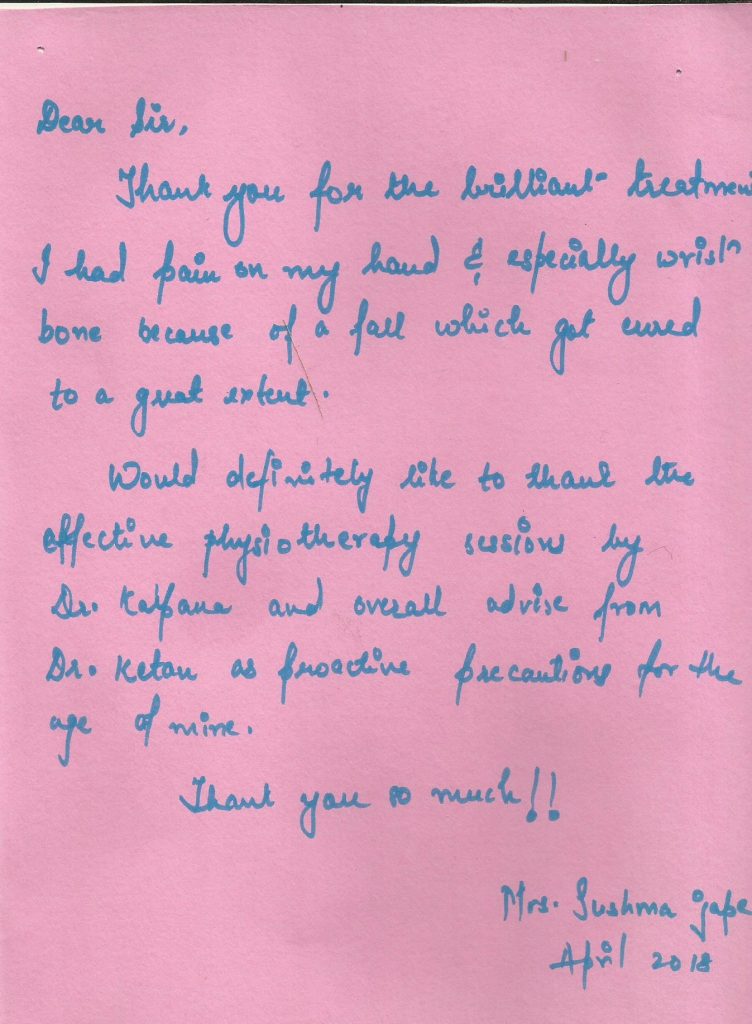 Dear Sir,
Thank you for the brilliant treatment
I had pain on my hand & especially wrist
bone because of a fall which got cured
to a great extent.
Would definitely like to thank the
effective physiotherapy sessions by
Dr. Kalpana and overall advise from
Dr. Ketan as proactive precautions for the
age of mine.
Thank you so much!!
Mrs. Sushma Jape
April 2018